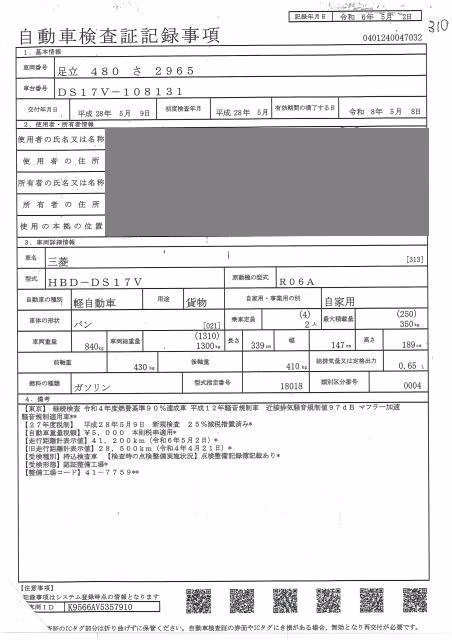 記録年月日 令和 6年 5月 2日
310
自動車検査証記録事項
0401240047032
1. 基本情報
車両番号 足立 480 さ 2965
車台番号 DS17V-108131
交付年月日 平成 28年 5月 9日 初度検査年月 平成 28年 5月 有効期間の満了する日 令和 8年 5月 8日
2. 使用者・所有者情報
使用者の氏名又は名称
使用者の住所
所有者の氏名又は名称
所有者の住所
使用の本拠の位置
3. 車両詳細情報
車名 三菱 [313]
型式 HBD-DS17V 原動機の型式 R06A
自動車の種別 軽自動車 用途 貨物 自家用・事業用の別 自家用
車体の形状 バン [021] 乗車定員 (4) 2人 最大積載量 (250) 350kg
車両重量 840kg 車両総重量 (1310) 1300kg 長さ 339cm 幅 147cm 高さ 189cm
前軸重 430kg 後軸重 410kg 総排気量又は定格出力 0.65L
燃料の種類 ガソリン 型式指定番号 18018 類別区分番号 0004
4. 備考
【東京】 継続検査 令和4年度燃費基準90%達成車 平成12年騒音規制車 近接排気騒音規制値97dB マフラー加速
騒音規制適用車**
【27年度税制】 平成28年5月9日 新規検査 25%減税措置済み*
【自動車重量税額】 ¥5,000 本則税率適用*
【走行距離計表示値】 41,200km (令和6年5月2日)*
【旧走行距離計表示値】 28,500km (令和4年4月21日)*
【受検種別】 持込検査車 【検査時の点検整備実施状況】 点検整備記録簿記載あり*
【受検形態】 認証整備工場*
【整備工場コード】 41-7759**
【注意事項】
記録事項はシステム登録時点の情報となります
車両ID K9566AV5357910
のICタグ部分は折り曲げずに保管ください。自動車検査証の券面やICタグにき損がある場合、無効となり再交付が必要です。